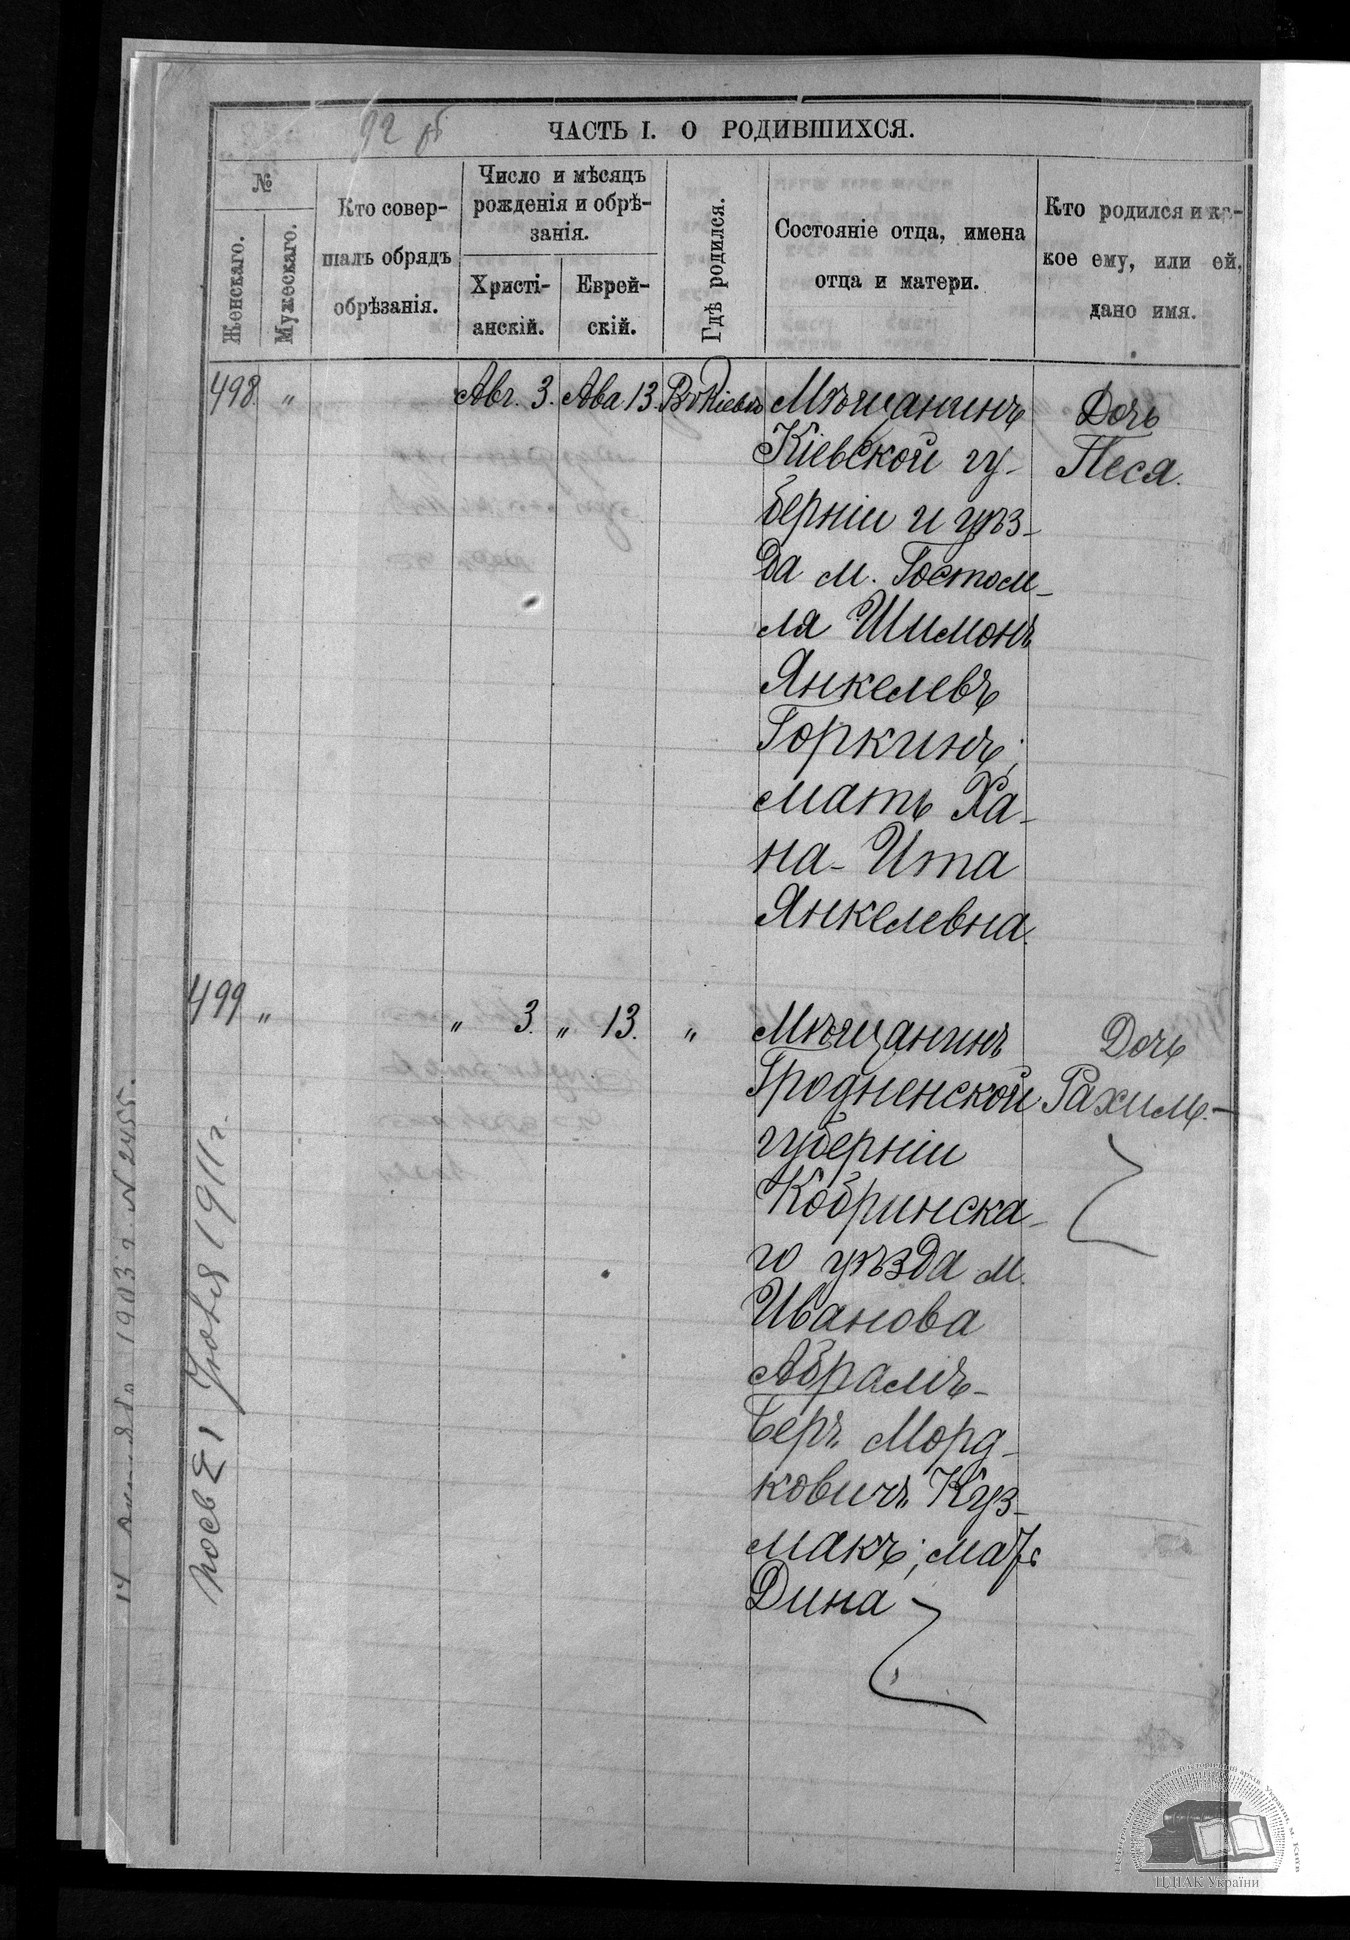 92 об
ЧАСТЬ I. О РОДИВШИХСЯ.
№
Женскаго.
Мужескаго.
Кто совер-
шалъ обрядъ
обрѣзанія.
Число и мѣсяцъ
рожденія и обрѣ-
занія.
Христі-
анскій.
Еврей-
скій.
Гдѣ родился.
Состояніе отца, имена
отца и матери.
Кто родился и ка-
кое ему, или ей,
дано имя.
498. " Авг. 3. Ава 13. Въ Кіевѣ Мѣщанинъ
Кіевской гу-
берніи и уѣз-
да м. Гостом-
ля Шимонъ
Янкелевъ
Горкинъ;
мать Ха-
на-Ита
Янкелевна.
Дочь
Песя.
499 " " 3. " 13. " Мѣщанинъ
Гродненской
губерніи
Кобринска-
го уѣзда м.
Иванова
Абрамъ-
Беръ Морд-
ковичъ Куз-
макъ; мать
Дина
Дочь
Рахиль.-
1903 г. N 2455.
1911 г.
ЦДІАК України